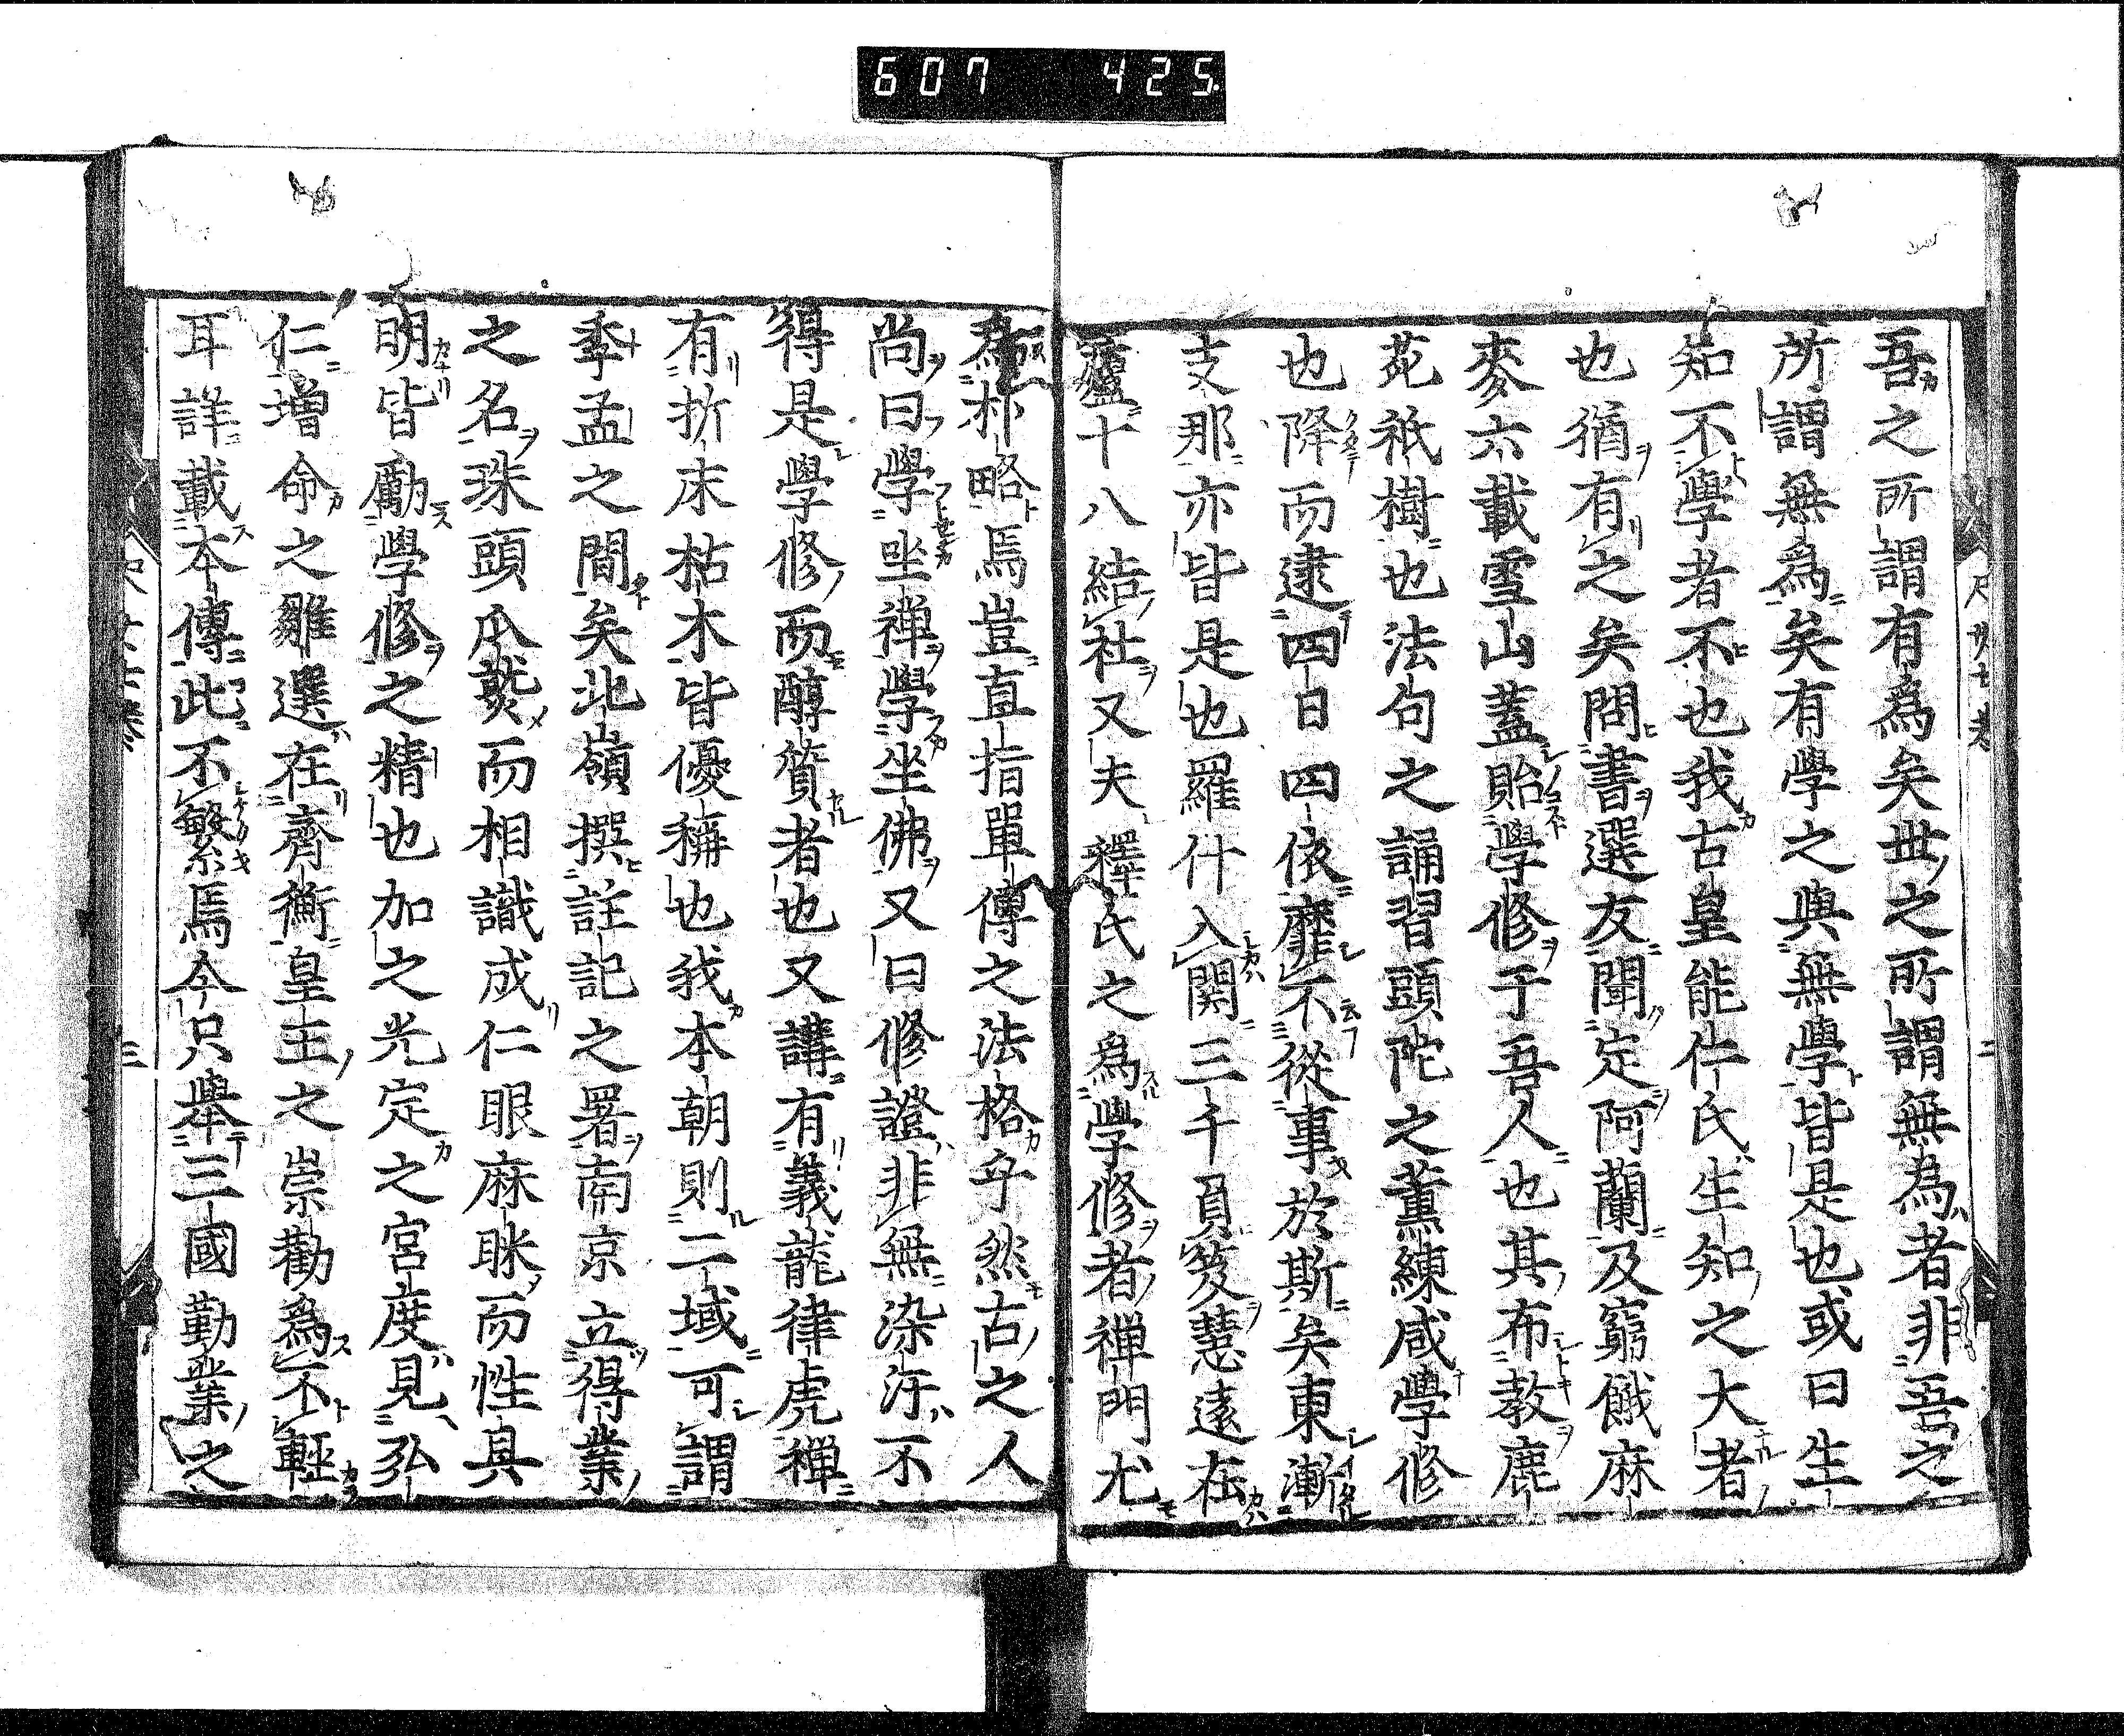 607 425
吾之所謂有爲矣世之所謂無為者非吾之
所謂無爲矣有學之與無學皆是也或曰生
知不學者不也我古皇能仵氏生知之大者
也猶有之矣問書選友聞定阿蘭及窮餓麻
麥六載雪山蓋貽學修于吾人也其布教鹿
苑祇樹也法句之誦習頭陀之薫練咸學修
也降而逮四日四依靡不從事於斯矣東漸
支那亦皆是也羅什入関三千負笈慧遠在
廬十八結社又夫釋氏之爲學修者禅門尤
為朴略焉豈直指單傳之法格乎然古之人
尚曰學坐禅學坐佛又曰修證非無染汚不
得是學修而醇質者也又講有義龍律虎禅
有折床枯木皆優稱也我本朝則二域可謂
季孟之間矣北嶺撰註記之署南京立得業
之名珠頭爪甃而相識成仁眼麻眯而性具
明皆勵學修之精也加之光定之宮度見弘
仁増命之雖選在齊衡皇王之崇勸爲不輕
耳詳載本傳此不繁焉今只舉三國勤業之
二
三